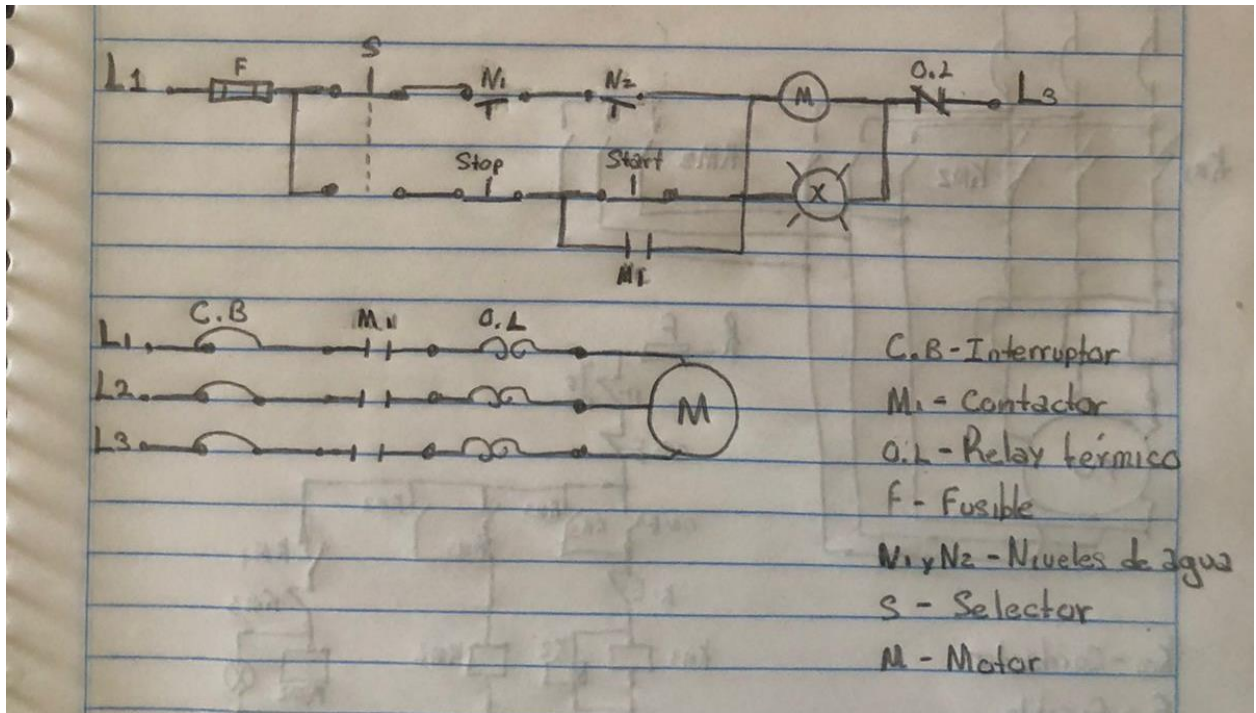 S
L1 F N1 N2 M O.L L3
Stop Start
X
M1
C.B M1 O.L
L1
L2
L3
M
C.B - Interruptor
M1 - Contactor
O.L - Relay térmico
F - Fusible
N1 y N2 - Niveles de agua
S - Selector
M - Motor